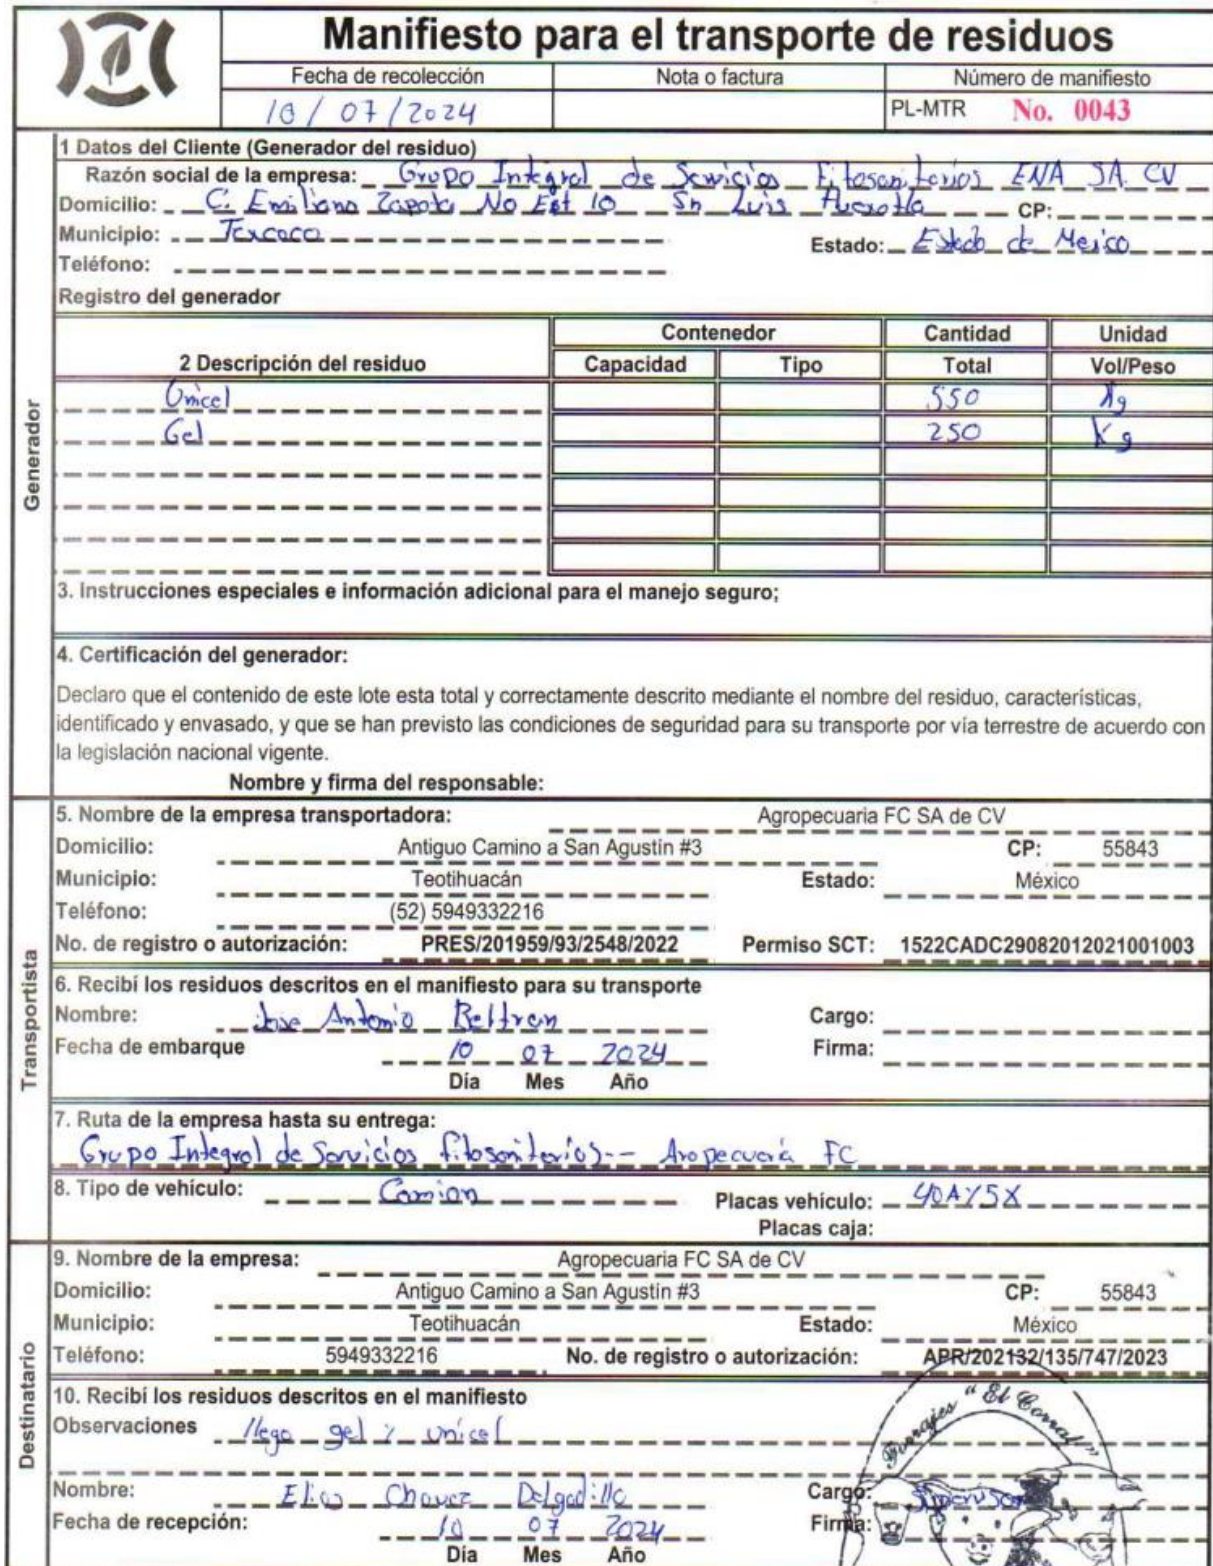 Manifiesto para el transporte de residuos
Fecha de recolección Nota o factura Número de manifiesto
10 / 07 / 2024 PL-MTR No. 0043
1 Datos del Cliente (Generador del residuo)
Razón social de la empresa: Grupo Integral de Servicios Fitosanitarios ENA SA. CV
Domicilio: C. Emiliano Zapata No Ext 10 Sn Luis Huexotla CP:
Municipio: Texcoco Estado: Estado de Mexico
Teléfono:
Registro del generador
Contenedor Cantidad Unidad
2 Descripción del residuo Capacidad Tipo Total Vol/Peso
Unicel 550 Kg
Gel 250 Kg
3. Instrucciones especiales e información adicional para el manejo seguro;
4. Certificación del generador:
Declaro que el contenido de este lote esta total y correctamente descrito mediante el nombre del residuo, características,
identificado y envasado, y que se han previsto las condiciones de seguridad para su transporte por vía terrestre de acuerdo con
la legislación nacional vigente.
Nombre y firma del responsable:
Generador
5. Nombre de la empresa transportadora: Agropecuaria FC SA de CV
Domicilio: Antiguo Camino a San Agustín #3 CP: 55843
Municipio: Teotihuacán Estado: México
Teléfono: (52) 5949332216
No. de registro o autorización: PRES/201959/93/2548/2022 Permiso SCT: 1522CADC29082012021001003
6. Recibí los residuos descritos en el manifiesto para su transporte
Nombre: Jose Antonio Beltran Cargo:
Fecha de embarque 10 07 2024 Firma:
Día Mes Año
7. Ruta de la empresa hasta su entrega:
Grupo Integral de Servicios fitosanitarios-- Aropecuaria FC
8. Tipo de vehículo: Camion Placas vehículo: 40AY5X
Placas caja:
Transportista
9. Nombre de la empresa: Agropecuaria FC SA de CV
Domicilio: Antiguo Camino a San Agustín #3 CP: 55843
Municipio: Teotihuacán Estado: México
Teléfono: 5949332216 No. de registro o autorización: APR/202132/135/747/2023
10. Recibí los residuos descritos en el manifiesto
Observaciones llego gel y unicel
Forrajes "El Corral"
Nombre: Elias Chavez Delgadillo Cargo: Supervisor
Fecha de recepción: 10 07 2024 Firma:
Día Mes Año
Destinatario